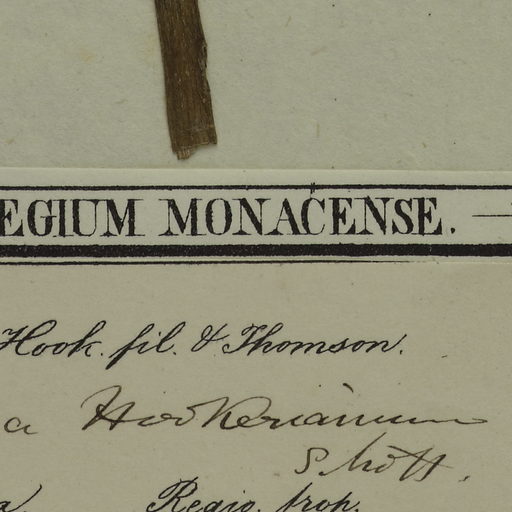 EGIUM MONACENSE. —
Hook. fil. & Thomson.
a Hookerianum
Schott.
a Regio. trop.